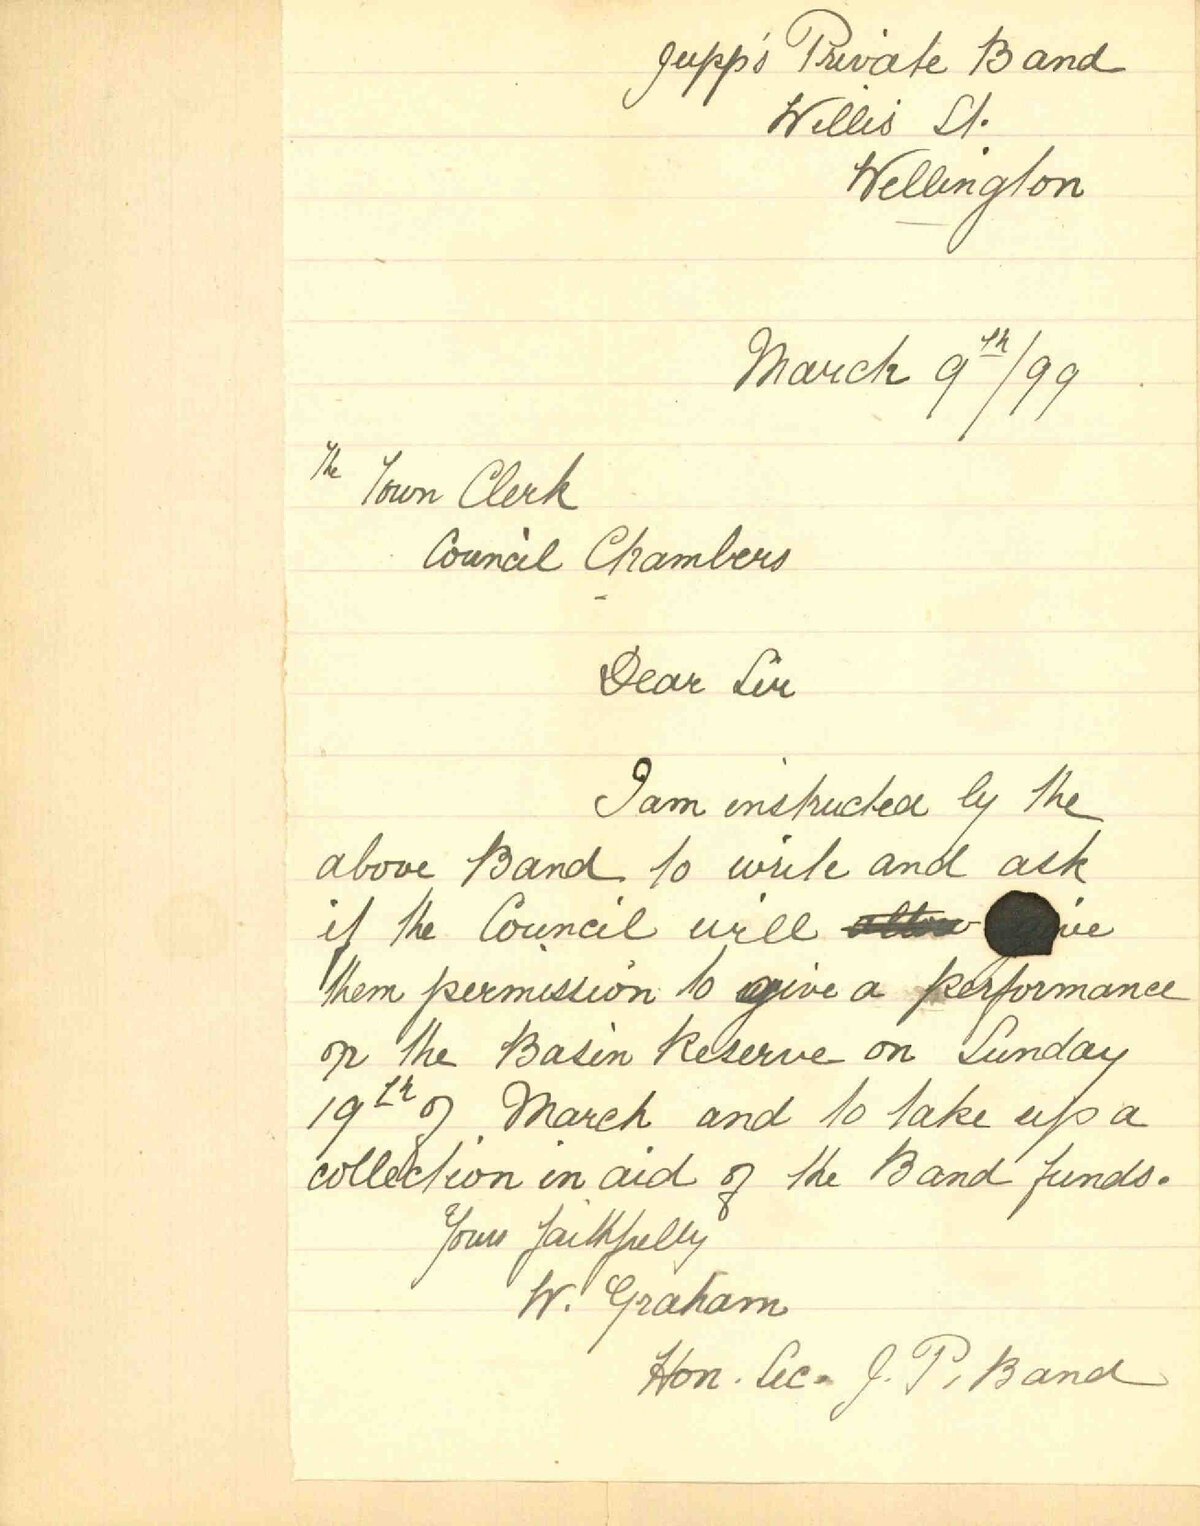 Jupp's Private Band
Willis St.
Wellington
March 9th/99
The Town Clerk
Council Chambers
Dear Sir
I am instructed by the
above Band to write and ask
if the Council will allow give
them permission to give a performance
on the Basin Reserve on Sunday
19th of March and to take up a
collection in aid of the Band funds.
Yours faithfully
W. Graham
Hon. Sec. J. P. Band